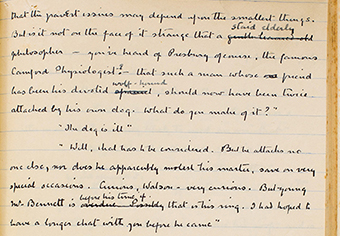 that the gravest issues may depend upon the smallest things.
staid elderly
But is it not on the face of it strange that a gentle learned old
philosopher – you've heard of Presbury of course, the famous
Camford Physiologist? – that such a man whose friend
wolf-hound
has been his devoted, should now have been twice
attacked by his own dog. What do you make of it?"
"The dog is ill"
"Well, that has to be considered. But he attacks no
one else, nor does he apparently molest his master, save on very
special occasions. Curious, Watson – very curious. But young
before his time if
Mr. Bennett is that is his ring. I had hoped to
have a longer chat with you before he came"